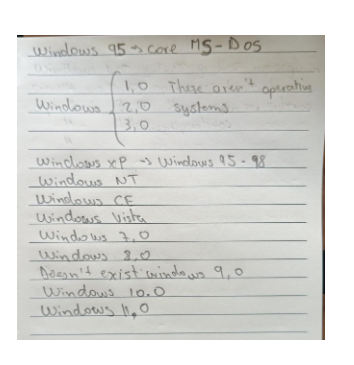 Windows 95 → core MS-DOS
1,0 These aren't operative
Windows 2,0 systems
3,0
Windows XP → Windows 95-98
Windows NT
Windows CE
Windows Vista
Windows 7,0
Windows 8,0
Doesn't exist windows 9,0
Windows 10.0
Windows 11,0